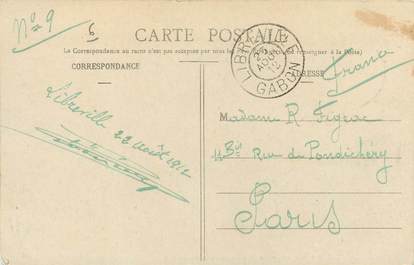 N° 9
6
CARTE POSTALE
La Correspondance au recto n'est pas acceptée par tous les
se renseigner à la Poste)
CORRESPONDANCE
ADRESSE
France
LIBREVILLE
AOUT
12
GABON
Libreville
22 août 1912
Madame R Figeac
11 Bis Rue du Pondichéry
Paris